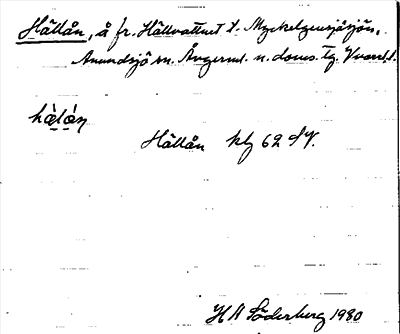 Hällån, å fr. Hällvattnet t. Myckelgensjösjön,
Anundsjö sn. Ångerml. n. doms. Tg.
hälån
Hällån kbl 62 SV.
H A Söderberg 1930